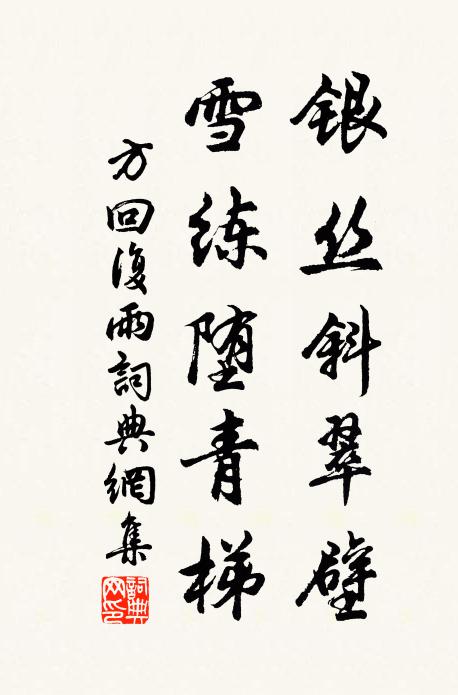 银丝斜翠壁
雪练堕青梯
方回復雨詞典網集
詞典網印